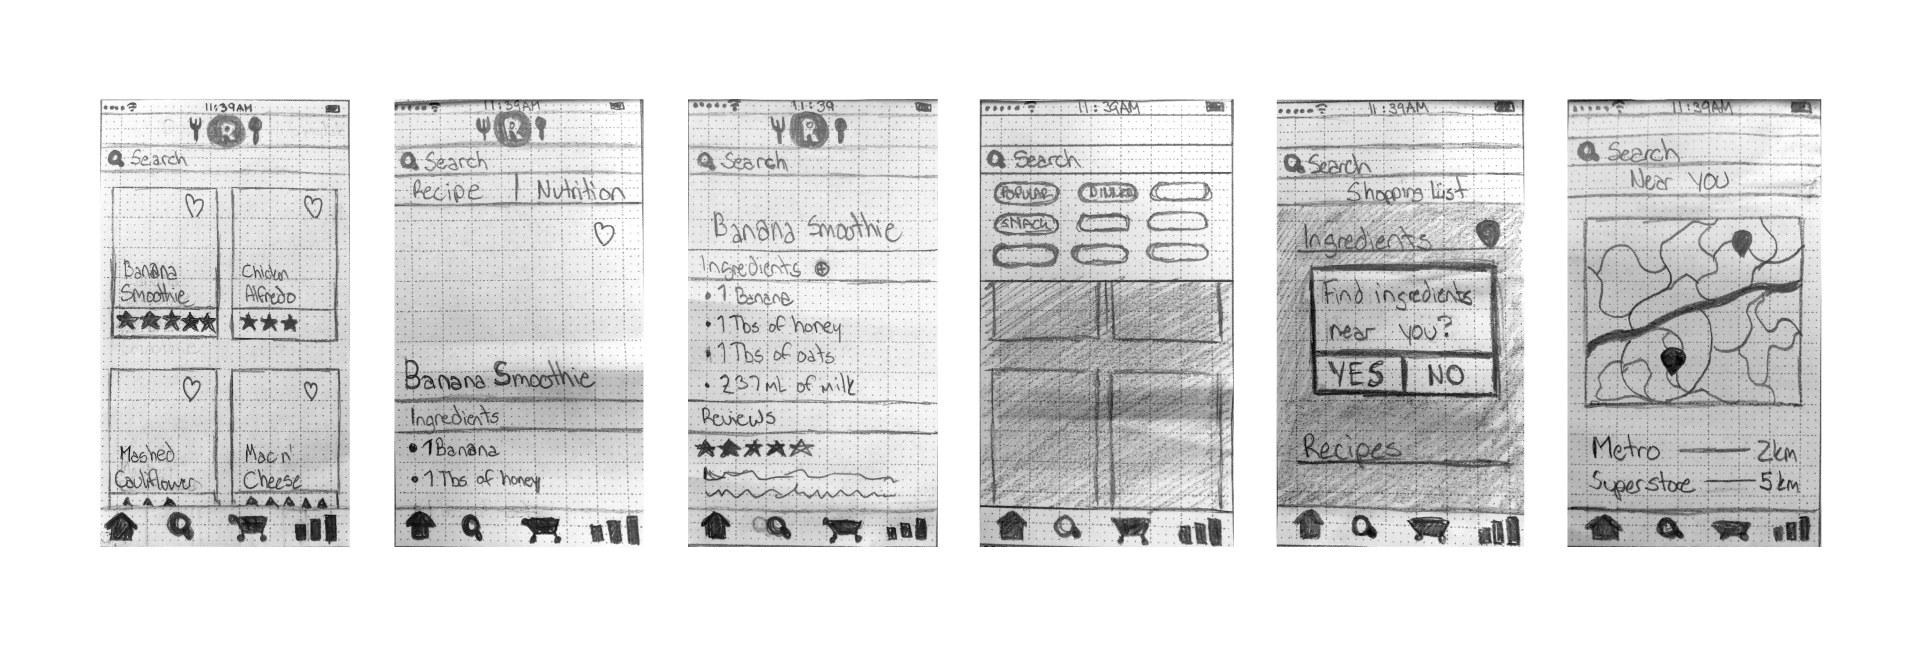 11:39AM
R
Search
Banana
Smoothie
Chicken
Alfredo
Mashed
Cauliflower
Mac n'
Cheese
11:39AM
R
Search
Recipe | Nutrition
Banana Smoothie
Ingredients
• 1 Banana
• 1 Tbs of honey
11:39
R
Search
Banana Smoothie
Ingredients
• 1 Banana
• 1 Tbs of honey
• 1 Tbs of oats
• 237 mL of milk
Reviews
11:39AM
Search
POPULAR
DINNER
SNACK
11:39AM
Search
Shopping List
Ingredients
Find ingredients
near you?
YES NO
Recipes
11:39AM
Search
Near YOU
Metro 2km
Superstore 5km